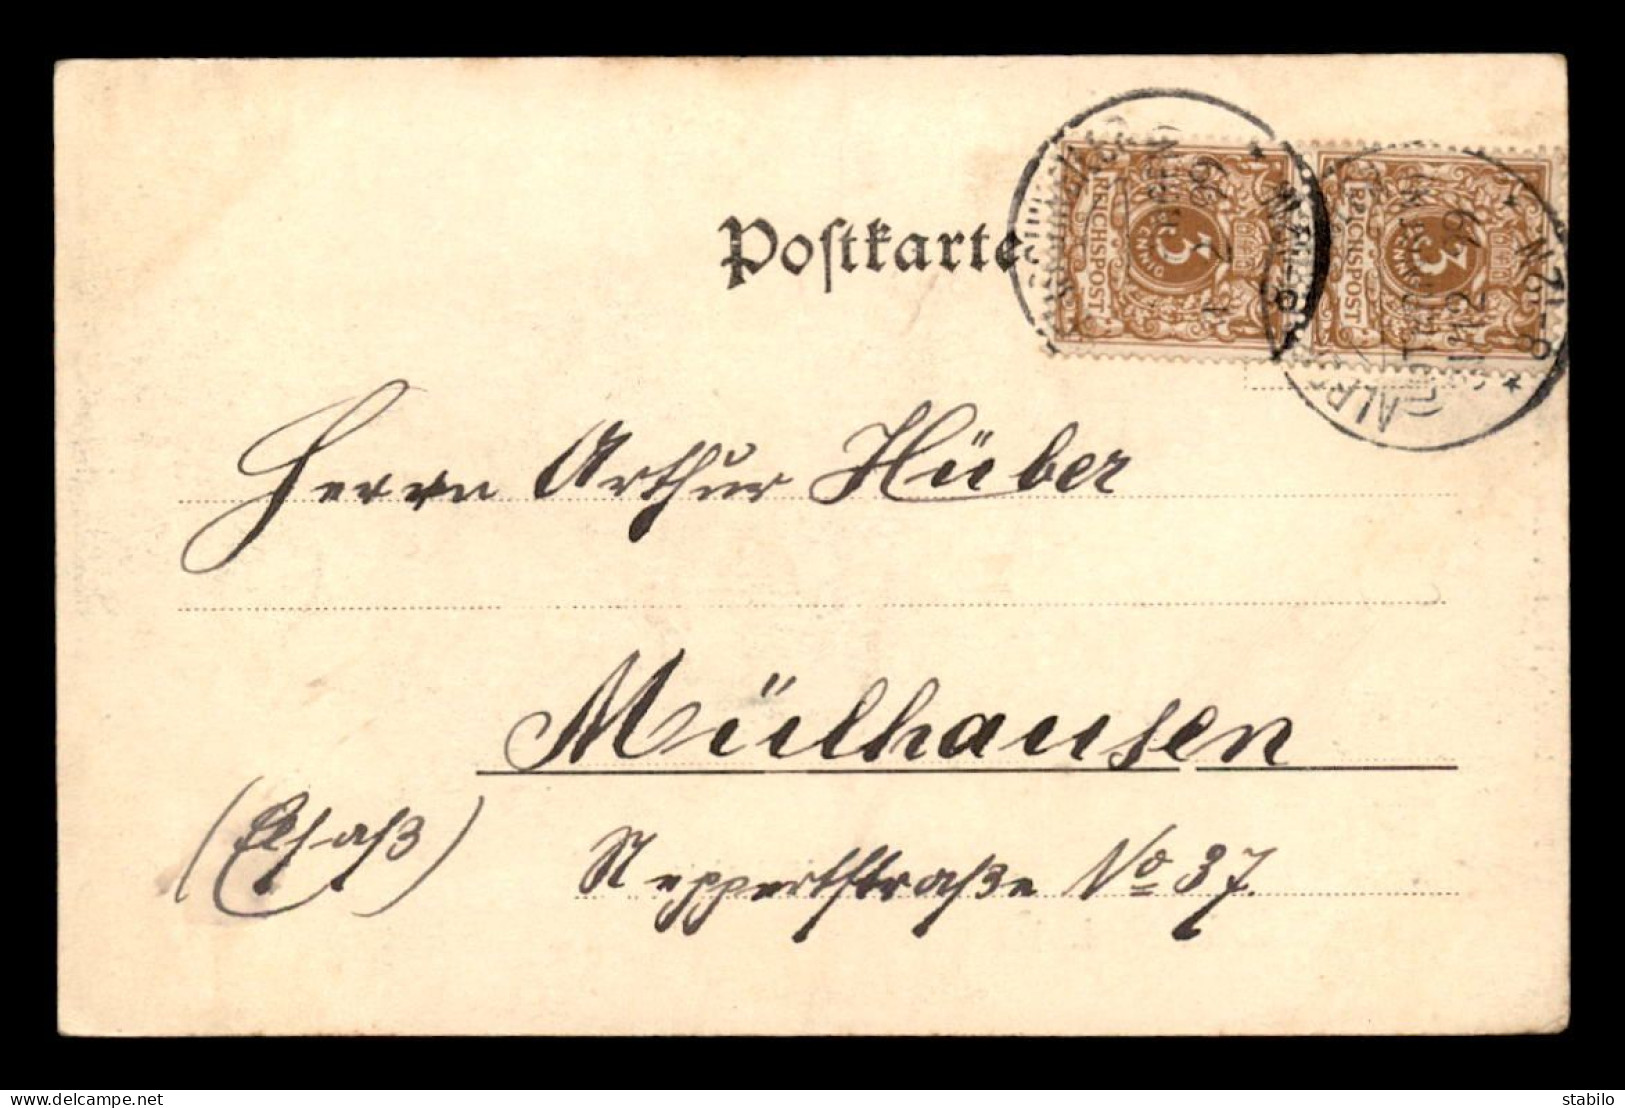 Postkarte
REICHSPOST
3
REICHSPOST
3
12 99
8-12N
Herrn Arthur Hüber
Mülhausen
(Elsaß)
Reppertstraße No 37.
www.delcampe.net
stabilo